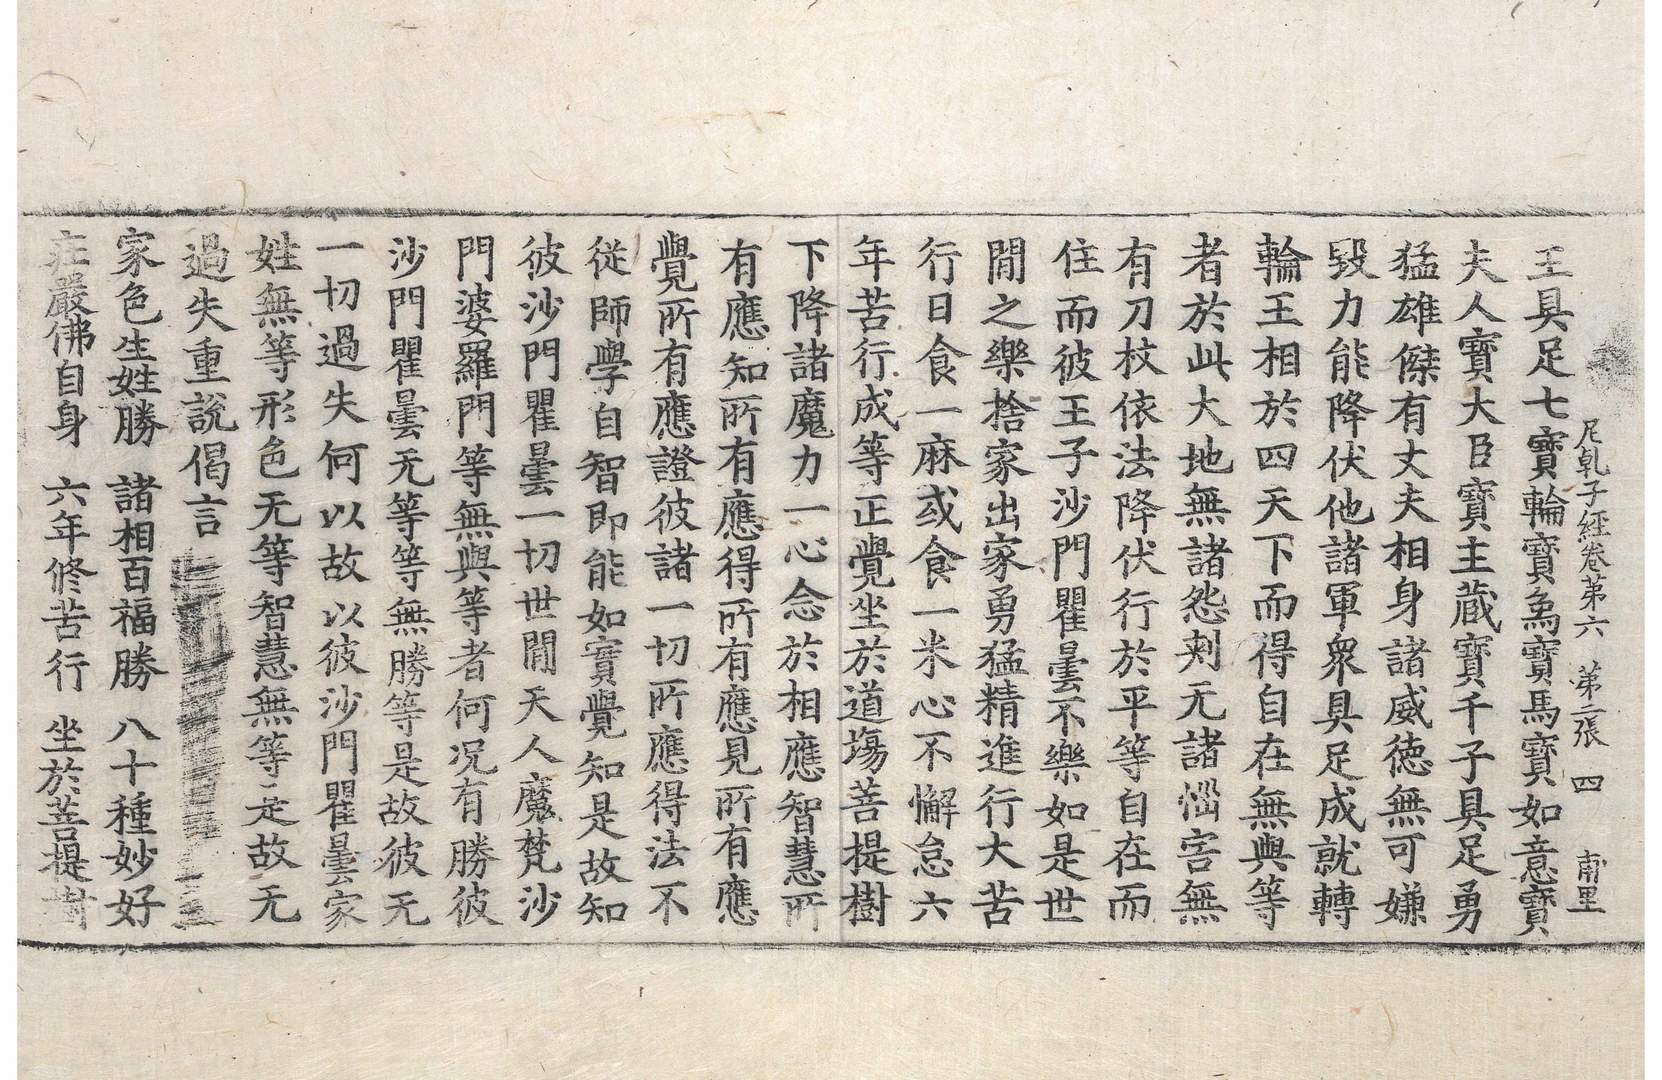 尼乹子經卷苐六 苐二張 四 南里
王具足七寶輪寶象寶馬寶如意寶
夫人寶大臣寶主藏寶千子具足勇
猛雄傑有丈夫相身諸威徳無可嫌
毀力能降伏他諸軍衆具足成就轉
輪王相於四天下而得自在無與等
者於此大地無諸怨刺无諸惱害無
有刀杖依法降伏行於平等自在而
住而彼王子沙門瞿曇不樂如是世
間之樂捨家出家勇猛精進行大苦
行日食一麻或食一米心不懈怠六
年苦行成等正覺坐於道場菩提樹
下降諸魔力一心念於相應智慧所
有應知所有應得所有應見所有應
覺所有應證彼諸一切所應得法不
従師學自智即能如實覺知是故知
彼沙門瞿曇一切世間天人魔梵沙
門婆羅門等無與等者何况有勝彼
沙門瞿曇无等等無勝等是故彼无
一切過失何以故以彼沙門瞿曇家
姓無等形色无等智慧無等是故无
過失重說偈言
家色生姓勝 諸相百福勝 八十種妙好
莊嚴佛自身 六年修苦行 坐於菩提樹